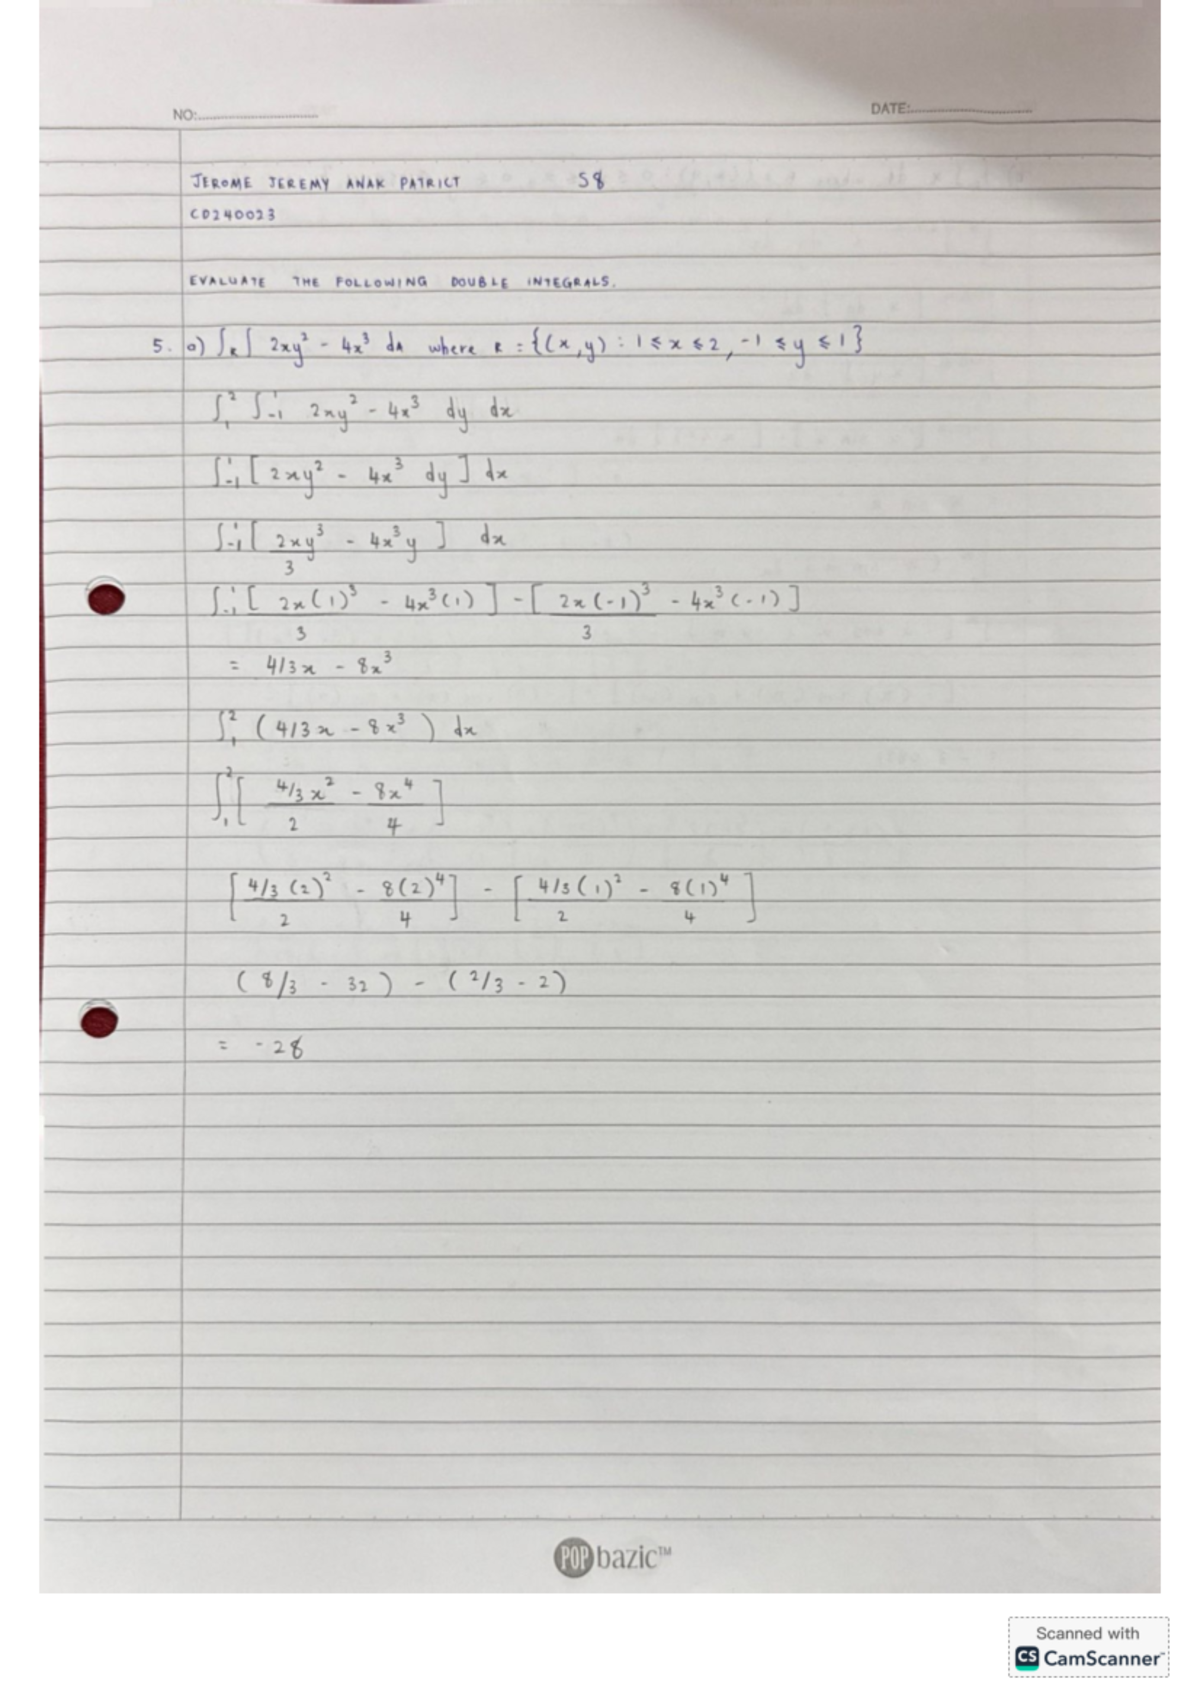 NO:
DATE:
JEROME JEREMY ANAK PATRICT S8
CD240023
EVALUATE THE FOLLOWING DOUBLE INTEGRALS.
5. a) ∫R∫ 2xy² - 4x³ dA where R = {(x,y) : 1 ≤ x ≤ 2, -1 ≤ y ≤ 1}
∫₁² ∫₋₁¹ 2xy² - 4x³ dy dx
∫₋₁¹ [ 2xy² - 4x³ dy ] dx
∫₋₁¹ [ 2xy³/3 - 4x³y ] dx
∫₋₁¹ [ 2x(1)³/3 - 4x³(1) ] - [ 2x(-1)³/3 - 4x³(-1) ]
= 4/3x - 8x³
∫₁² ( 4/3x - 8x³ ) dx
∫₁² [ 4/3x²/2 - 8x⁴/4 ]
[ 4/3(2)²/2 - 8(2)⁴/4 ] - [ 4/3(1)²/2 - 8(1)⁴/4 ]
( 8/3 - 32 ) - ( 2/3 - 2 )
= -28
POP bazic™
Scanned with
CS CamScanner™